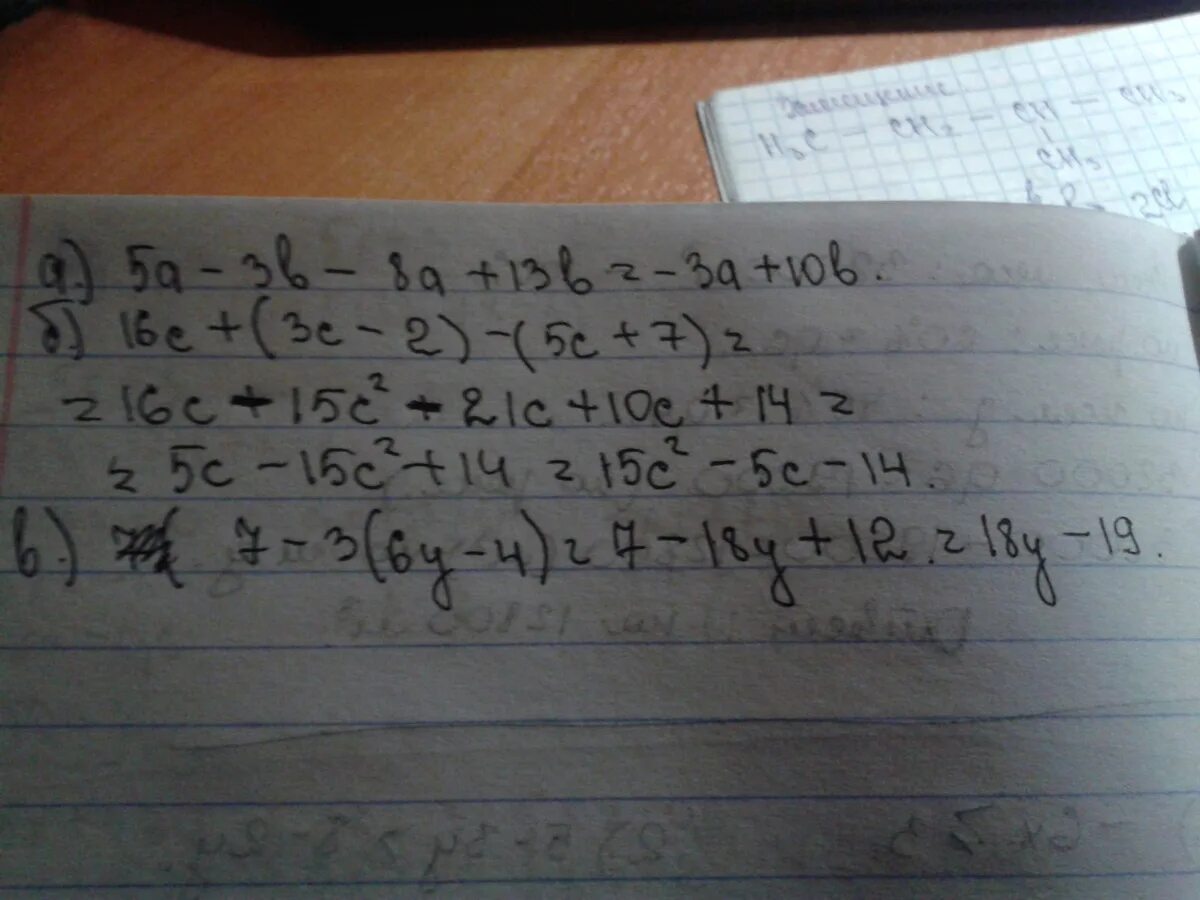 H₃C - CH₂ - CH - CH₃
CH₃
а.) 5a - 3b - 8a + 13b = -3a + 10b.
б) 16c + (3c - 2) - (5c + 7) =
= 16c - 15c² - 21c + 10c + 14 =
= 5c - 15c² + 14 = 15c² - 5c - 14.
в.) 7 - 3(6y - 4) = 7 - 18y + 12. = 18y - 19.